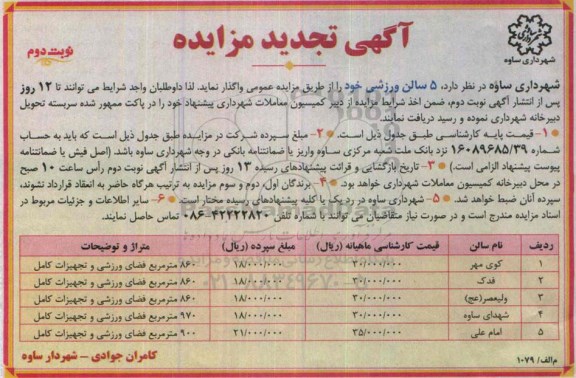 آگهی تجدید مزایده
نوبت دوم
شهرداری ساوه
شهرداری ساوه در نظر دارد، ۵ سالن ورزشی خود را از طریق مزایده عمومی واگذار نماید. لذا داوطلبان واجد شرایط می توانند تا ۱۲ روز
پس از انتشار آگهی نوبت دوم، ضمن اخذ شرایط مزایده از دبیر کمیسیون معاملات شهرداری پیشنهاد خود را در پاکت ممهور شده سربسته تحویل
دبیرخانه شهرداری نموده و رسید دریافت نمایند.
۱- قیمت پایه کارشناسی طبق جدول ذیل است. ۲- مبلغ سپرده شرکت در مزایده طبق جدول ذیل است که باید به حساب
شماره ۱۶۰۸۹۶۸۵/۳۹ نزد بانک ملت شعبه مرکزی ساوه واریز یا ضمانتنامه بانکی در وجه شهرداری ساوه باشد. (اصل فیش یا ضمانتنامه
پیوست پیشنهاد الزامی است.) ۳- تاریخ بازگشایی و قرائت پیشنهادهای رسیده ۱۳ روز پس از انتشار آگهی نوبت دوم رأس ساعت ۱۰ صبح
در محل دبیرخانه کمیسیون معاملات شهرداری خواهد بود. ۴- برندگان اول، دوم و سوم مزایده به ترتیب هرگاه حاضر به انعقاد قرارداد نشوند،
سپرده آنان ضبط خواهد شد. ۵- شهرداری ساوه در رد یک یا کلیه پیشنهادهای رسیده مختار است. ۶- سایر اطلاعات و جزئیات مربوط در
اسناد مزایده مندرج است و در صورت نیاز متقاضیان می توانند با شماره تلفن ۴۲۲۲۲۸۲۰-۰۸۶ تماس حاصل نمایند.
ردیف نام سالن قیمت کارشناسی ماهیانه (ریال) مبلغ سپرده (ریال) متراژ و توضیحات
۱ کوی مهر ۳۰/۰۰۰/۰۰۰ ۱۸/۰۰۰/۰۰۰ ۸۶۰ مترمربع فضای ورزشی و تجهیزات کامل
۲ فدک ۳۰/۰۰۰/۰۰۰ ۱۸/۰۰۰/۰۰۰ ۸۶۰ مترمربع فضای ورزشی و تجهیزات کامل
۳ ولیعصر(عج) ۳۰/۰۰۰/۰۰۰ ۱۸/۰۰۰/۰۰۰ ۸۶۰ مترمربع فضای ورزشی و تجهیزات کامل
۴ شهدای ساوه ۳۰/۰۰۰/۰۰۰ ۱۸/۰۰۰/۰۰۰ ۹۷۰ مترمربع فضای ورزشی و تجهیزات کامل
۵ امام علی ۳۵/۰۰۰/۰۰۰ ۲۱/۰۰۰/۰۰۰ ۹۰۰ مترمربع فضای ورزشی و تجهیزات کامل
م‌الف/ ۱۰۷۹
کامران جوادی – شهردار ساوه